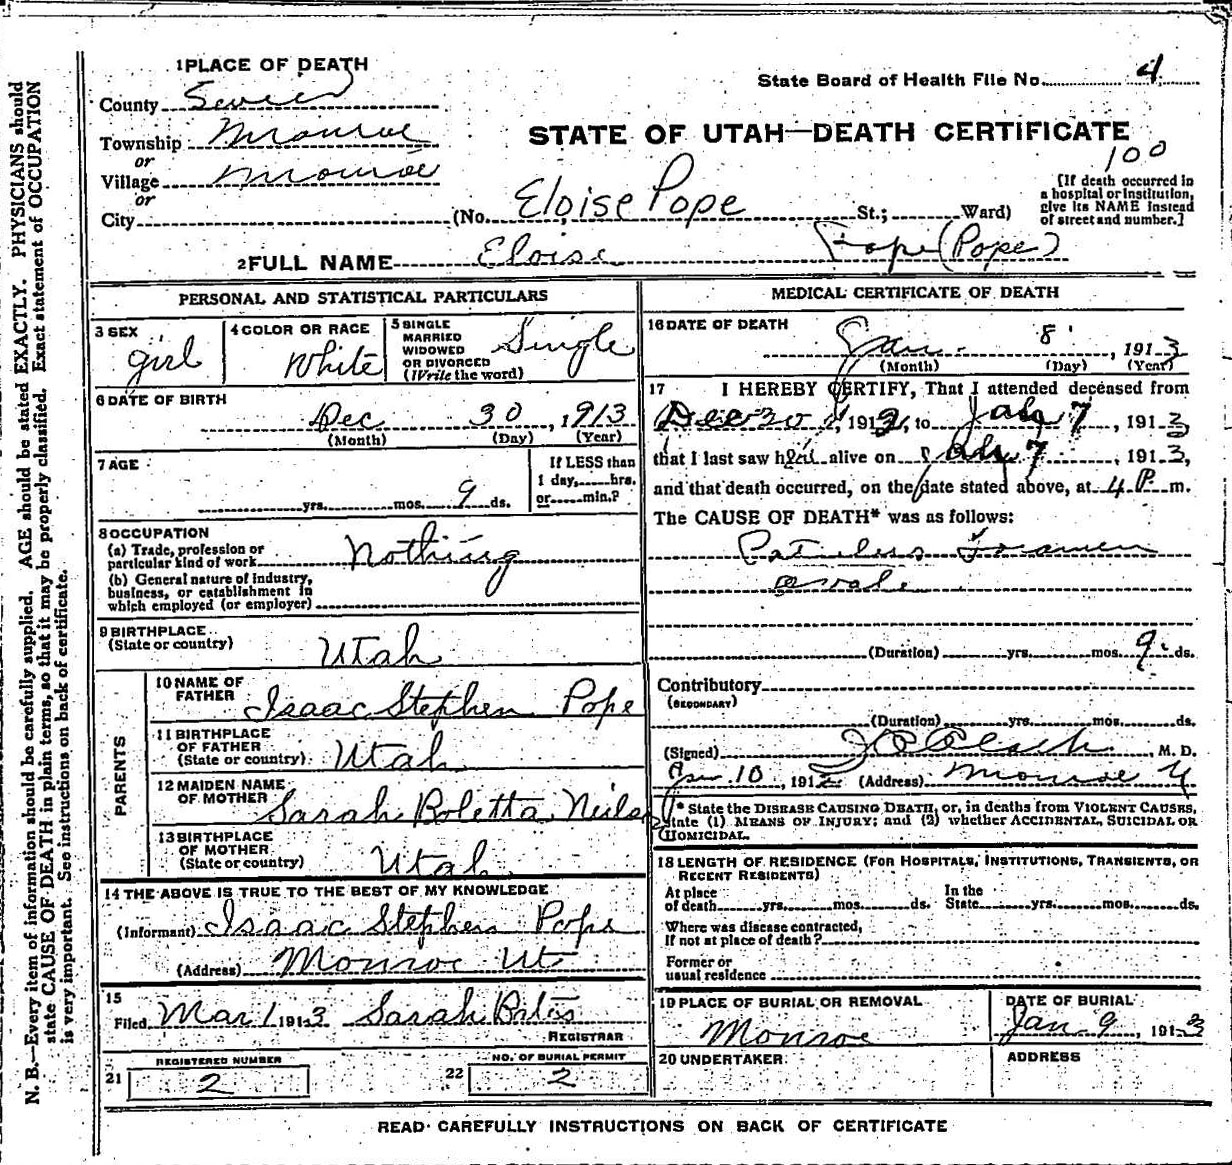 N. B.—Every item of information should be carefully supplied. AGE should be stated EXACTLY. PHYSICIANS should
state CAUSE OF DEATH in plain terms, so that it may be properly classified. Exact statement of OCCUPATION
is very important. See instructions on back of certificate.
1 PLACE OF DEATH
State Board of Health File No. 4
County Sevier
STATE OF UTAH—DEATH CERTIFICATE
Township Monroe
or
100
Village Monroe
or
[If death occurred in
a hospital or institution,
give its NAME instead
of street and number.]
City (No. Eloise Pope St.; Ward)
2 FULL NAME Eloise Pope (Pope)
PERSONAL AND STATISTICAL PARTICULARS
3 SEX
girl
4 COLOR OR RACE
White
5 SINGLE
MARRIED
WIDOWED
OR DIVORCED
(Write the word)
Single
6 DATE OF BIRTH
Dec 30, 1913
(Month) (Day) (Year)
7 AGE
yrs. mos. 9 ds.
If LESS than
1 day, hrs.
or min.?
8 OCCUPATION
(a) Trade, profession or
particular kind of work Nothing
(b) General nature of industry,
business, or establishment in
which employed (or employer)
9 BIRTHPLACE
(State or country)
Utah
PARENTS
10 NAME OF
FATHER
Isaac Stephen Pope
11 BIRTHPLACE
OF FATHER
(State or country)
Utah
12 MAIDEN NAME
OF MOTHER
Sarah Boletta
13 BIRTHPLACE
OF MOTHER
(State or country)
Utah
14 THE ABOVE IS TRUE TO THE BEST OF MY KNOWLEDGE
(Informant) Isaac Stephen Pope
(Address) Monroe Ut
15
Filed Mar 1 1913 Sarah
REGISTRAR
REGISTERED NUMBER
21 2
NO. OF BURIAL PERMIT
22 2
MEDICAL CERTIFICATE OF DEATH
16 DATE OF DEATH
Jan. 8, 1913
(Month) (Day) (Year)
17 I HEREBY CERTIFY, That I attended deceased from
Dec 30, 1912, to Jan 7, 1913
that I last saw her alive on Jan 7, 1913,
and that death occurred, on the date stated above, at 4 P. m.
The CAUSE OF DEATH* was as follows:
Patulous Foramen
ovale
(Duration) yrs. mos. 9 ds.
Contributory
(SECONDARY)
(Duration) yrs. mos. ds.
(Signed) M. D.
Jan 10, 191 (Address) Monroe U
* State the DISEASE CAUSING DEATH, or, in deaths from VIOLENT CAUSES,
state (1) MEANS OF INJURY; and (2) whether ACCIDENTAL, SUICIDAL OR
HOMICIDAL.
18 LENGTH OF RESIDENCE (FOR HOSPITALS, INSTITUTIONS, TRANSIENTS, OR
RECENT RESIDENTS)
At place
of death yrs. mos. ds.
In the
State yrs. mos. ds.
Where was disease contracted,
If not at place of death?
Former or
usual residence
19 PLACE OF BURIAL OR REMOVAL
Monroe
DATE OF BURIAL
Jan 9, 1913
20 UNDERTAKER
ADDRESS
READ CAREFULLY INSTRUCTIONS ON BACK OF CERTIFICATE